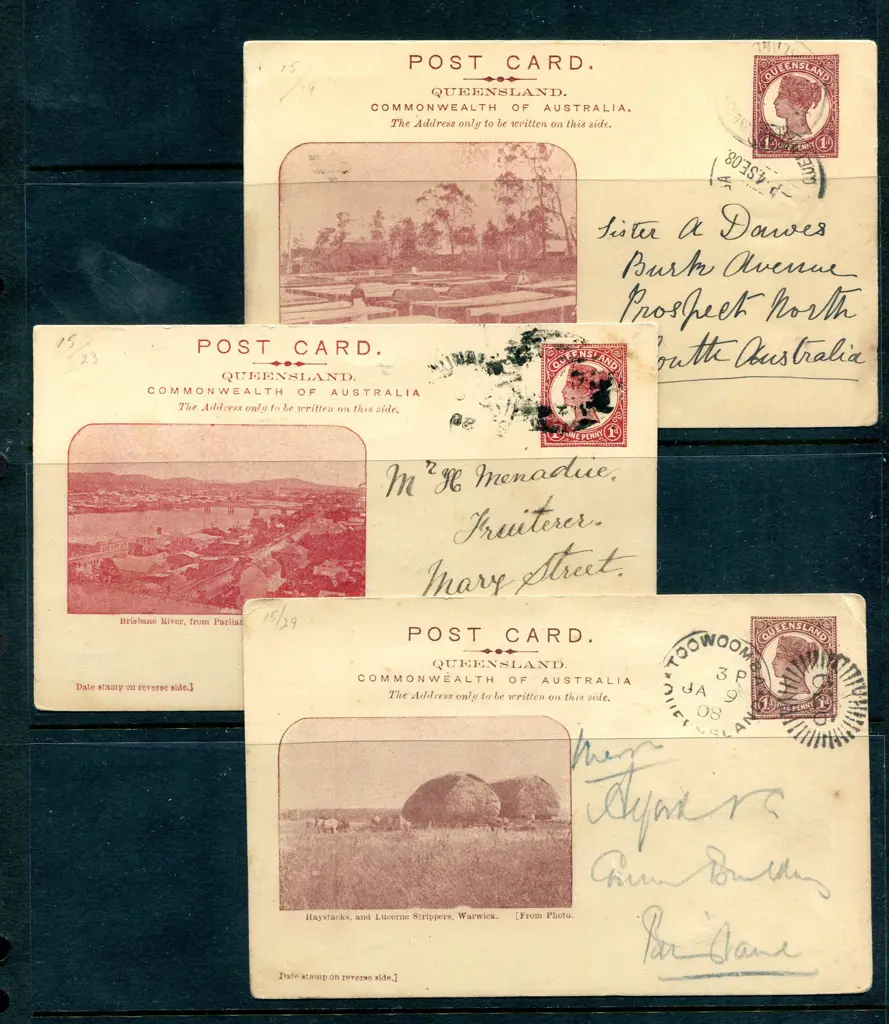 15/19
POST CARD.
QUEENSLAND.
COMMONWEALTH OF AUSTRALIA.
The Address only to be written on this side.
QUEENSLAND
1d ONE PENNY 1d
4 SE 08
Sister A Dawes
Burk Avenue
Prospect North
South Australia
15/23
POST CARD.
QUEENSLAND.
COMMONWEALTH OF AUSTRALIA
The Address only to be written on this side.
QUEENSLAND
1d ONE PENNY 1d
08
Mr H Menadue.
Fruiterer.
Mary Street.
Brisbane River, from Parlia
Date stamp on reverse side.]
15/29
POST CARD.
QUEENSLAND.
COMMONWEALTH OF AUSTRALIA
The Address only to be written on this side.
QUEENSLAND
1d ONE PENNY 1d
TOOWOOMB
3 P
JA 9
08
QUEENSLAND
Building
Brisbane
Haystacks, and Lucerne Strippers, Warwick. [From Photo.
Date stamp on reverse side.]